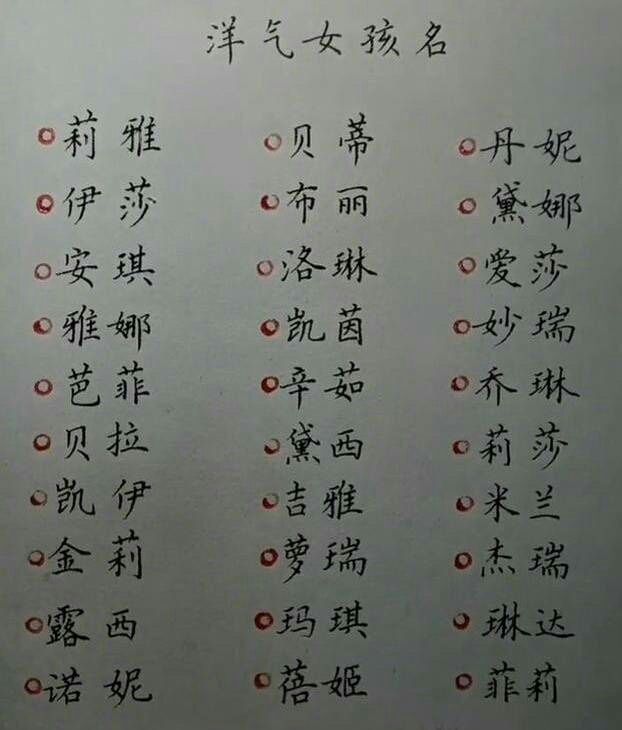 洋气女孩名
莉雅 贝蒂 丹妮
伊莎 布丽 黛娜
安琪 洛琳 爱莎
雅娜 凯茵 妙瑞
芭菲 辛茹 乔琳
贝拉 黛西 莉莎
凯伊 吉雅 米兰
金莉 萝瑞 杰瑞
露西 玛琪 琳达
诺妮 蓓姬 菲莉